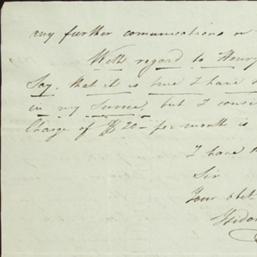 any further comunications on
With regard to Henry
Say, that it is true I have
in my Service, but I consi
Charge of $20 - per month is
I have t
Sir
Your obt
Widow